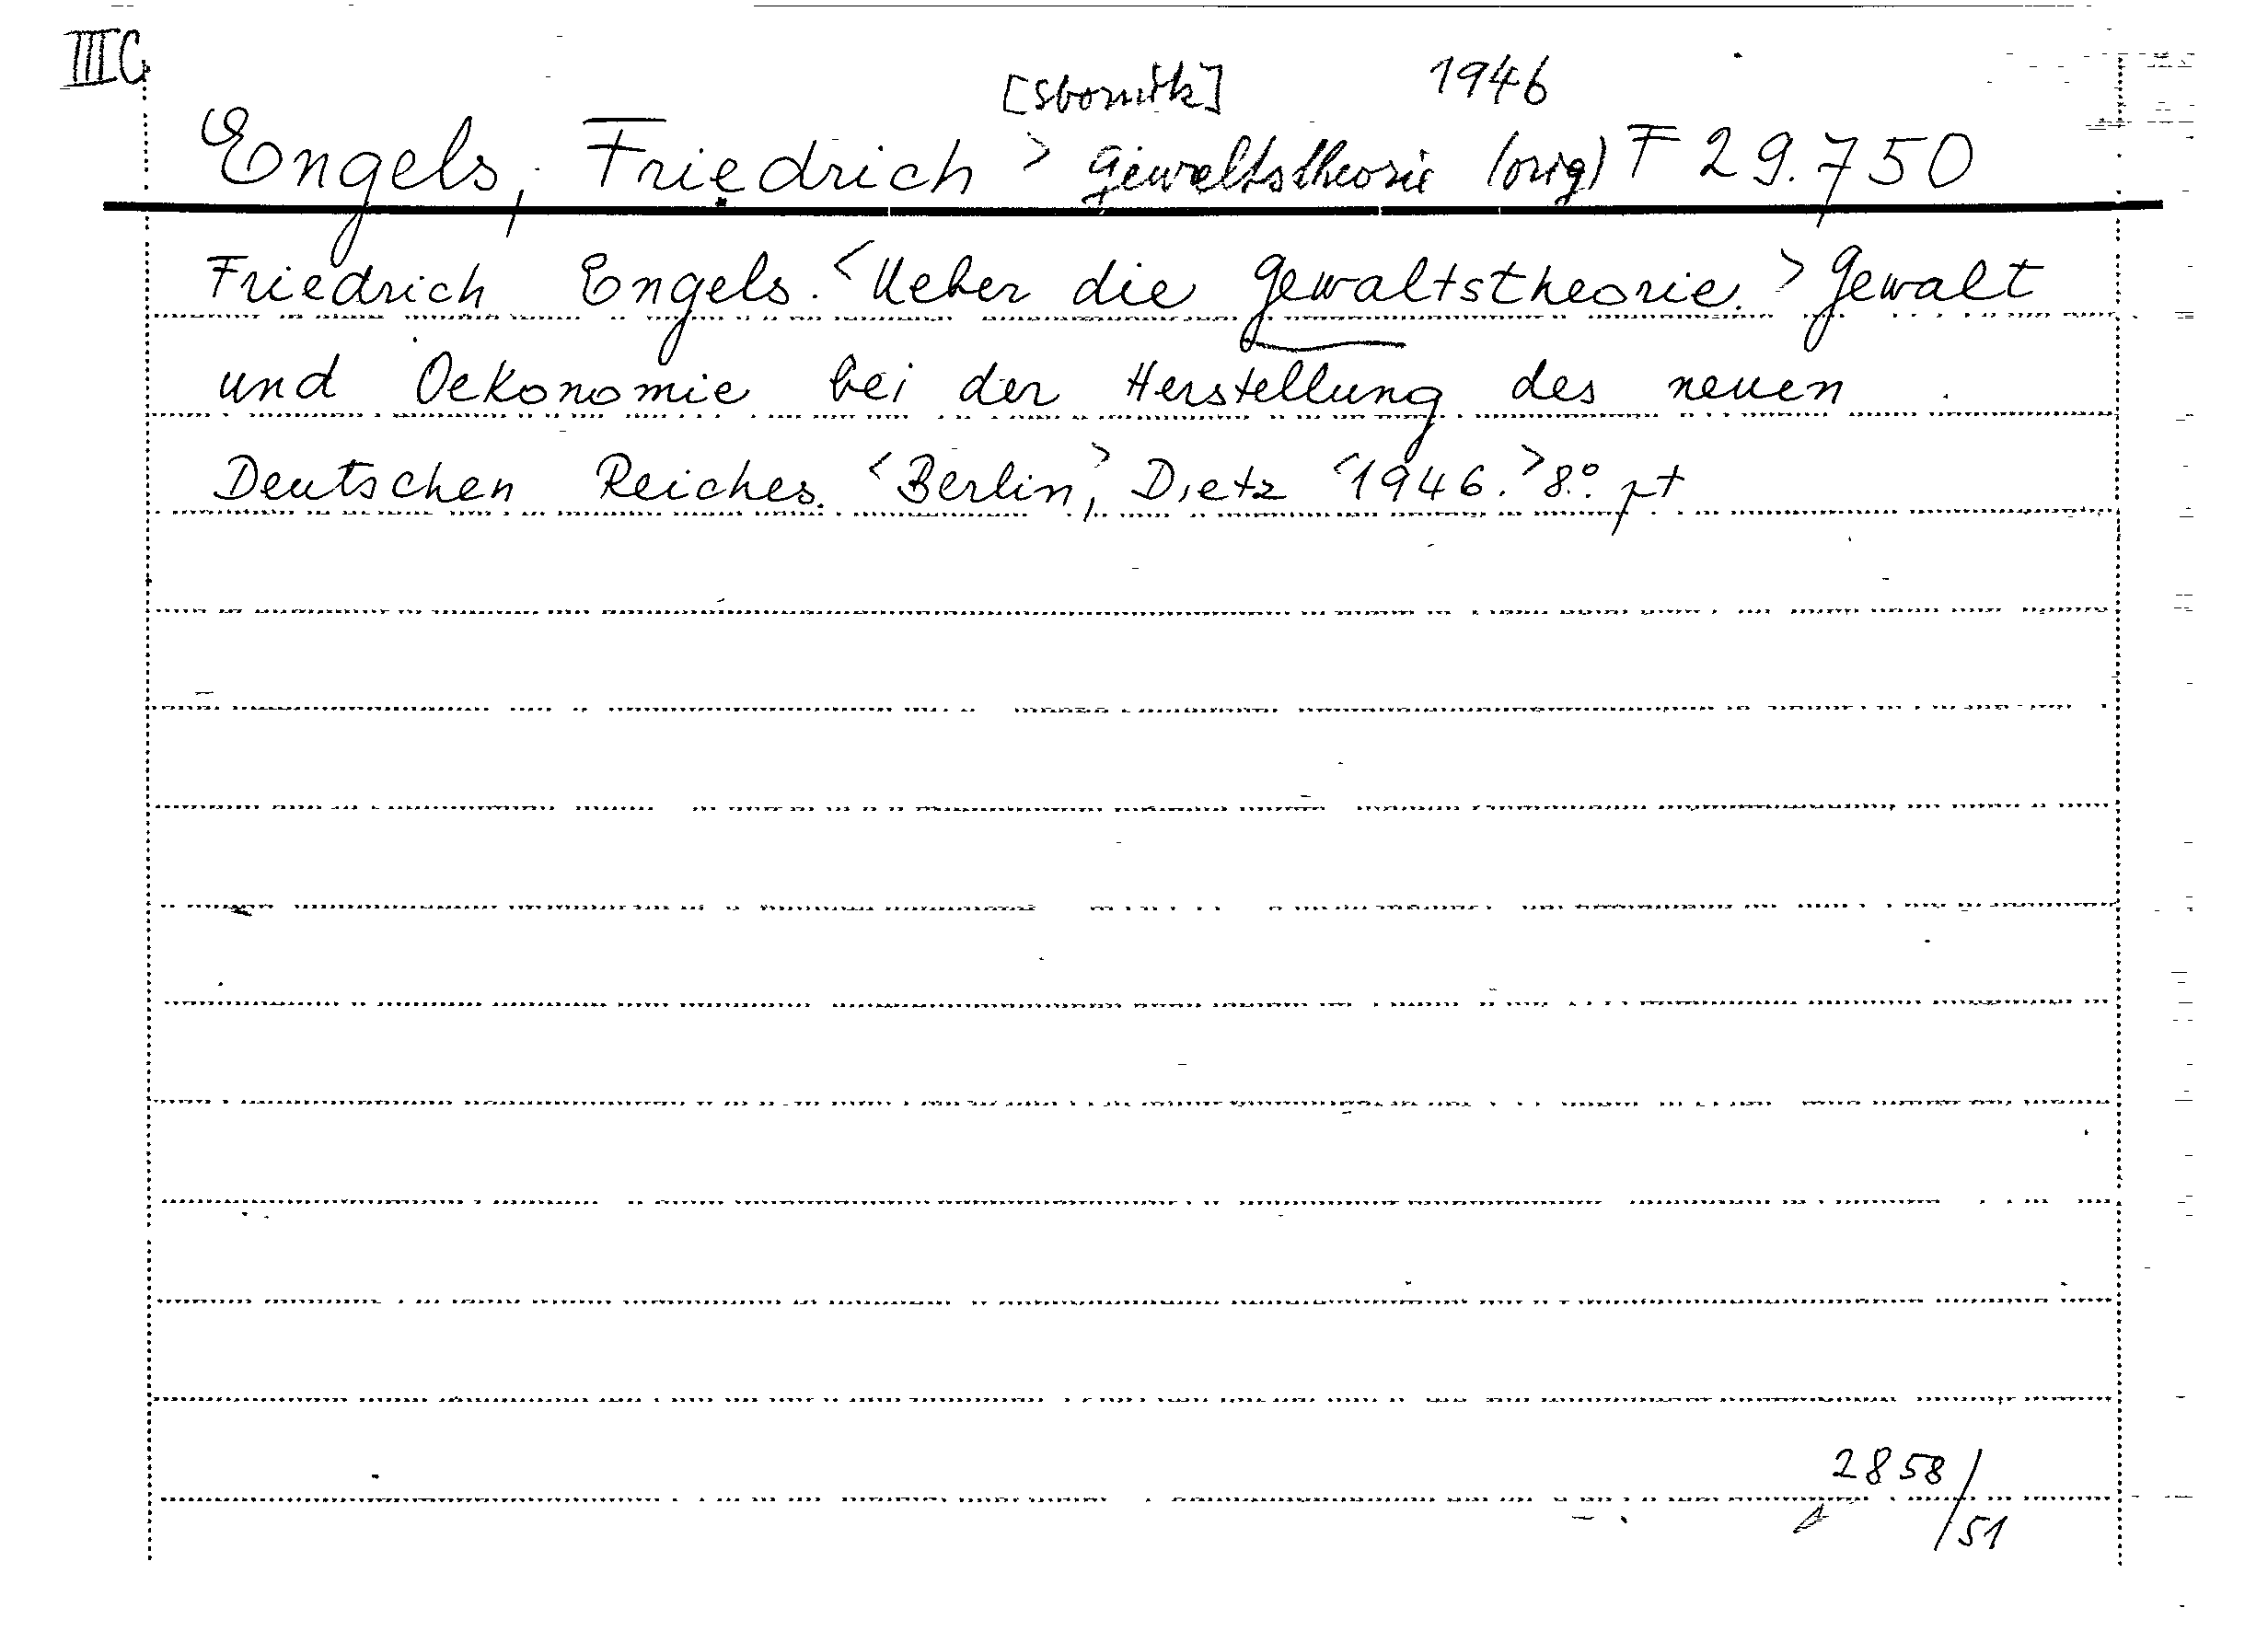 III C
[sborník] 1946
Engels, Friedrich > Gewaltstheorie (orig) F 29.750
Friedrich Engels. <Ueber die Gewaltstheorie.> Gewalt
und Oekonomie bei der Herstellung des neuen
Deutschen Reiches. <Berlin,> Dietz <1946.> 8.°
2858/
51